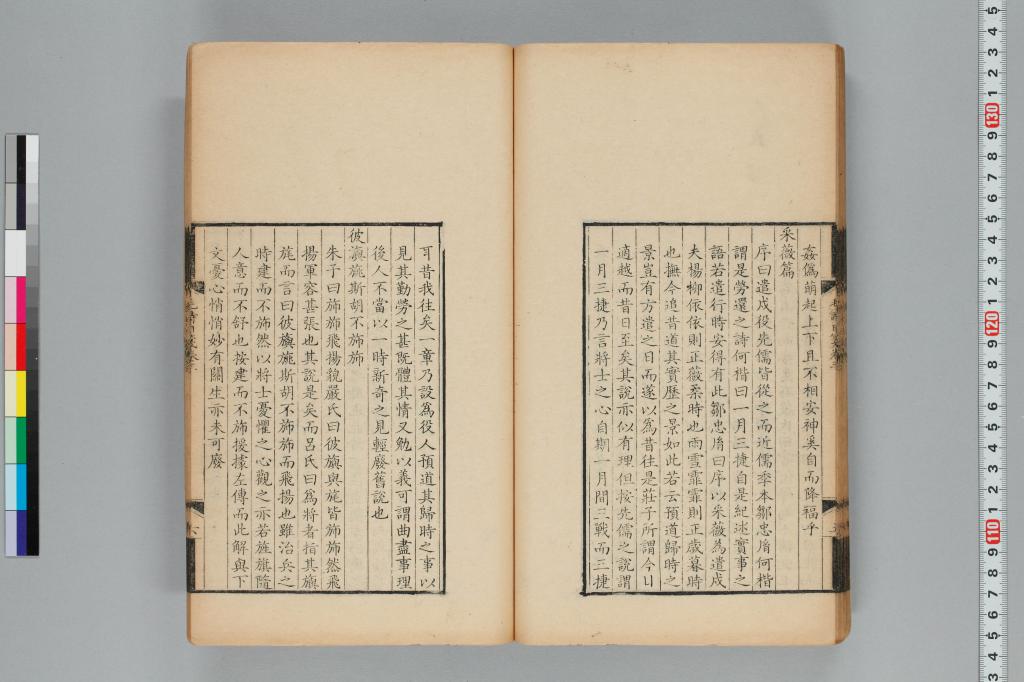 姦僞萌起上下且不相安神奚自而降福乎
采薇篇
序曰遣戍役先儒皆從之而近儒季本鄒忠脋何楷
謂是勞還之詩何楷曰一月三捷自是紀述實事之
語若遣行時安得有此鄒忠脋曰序以采薇為遣戍
夫楊柳依依則正薇柔時也雨雪霏霏則正歲暮時
也撫今追昔道其實歷之景如此若云預道歸時之
景豈有方遣之日而遂以為昔往是莊子所謂今日
適越而昔日至矣其說亦似有理但按先儒之說謂
一月三捷乃言將士之心自期一月間三戰而三捷
可昔我往矣一章乃設為役人預道其歸時之事以
見其勤勞之甚旣體其情又勉以義可謂曲盡事理
後人不當以一時新奇之見輕廢舊說也
彼旟旐斯胡不斾斾
朱子曰斾斾飛揚貌嚴氏曰彼旟與旐皆斾斾然飛
揚軍容甚張也其說是矣而呂氏曰為將者指其旟
旐而言曰彼旟旐斯胡不斾斾而飛揚也雖治兵之
時建而不斾然以將士憂懼之心觀之亦若旌旗隨
人意而不舒也按建而不斾援據左傳而此解與下
文憂心悄悄妙有關生亦未可廢
六
130
120
110